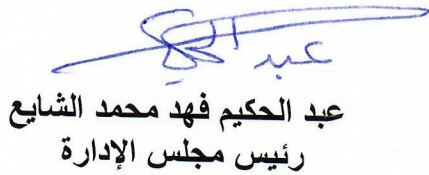 عبد الحكيم
عبد الحكيم فهد محمد الشايع
رئيس مجلس الإدارة